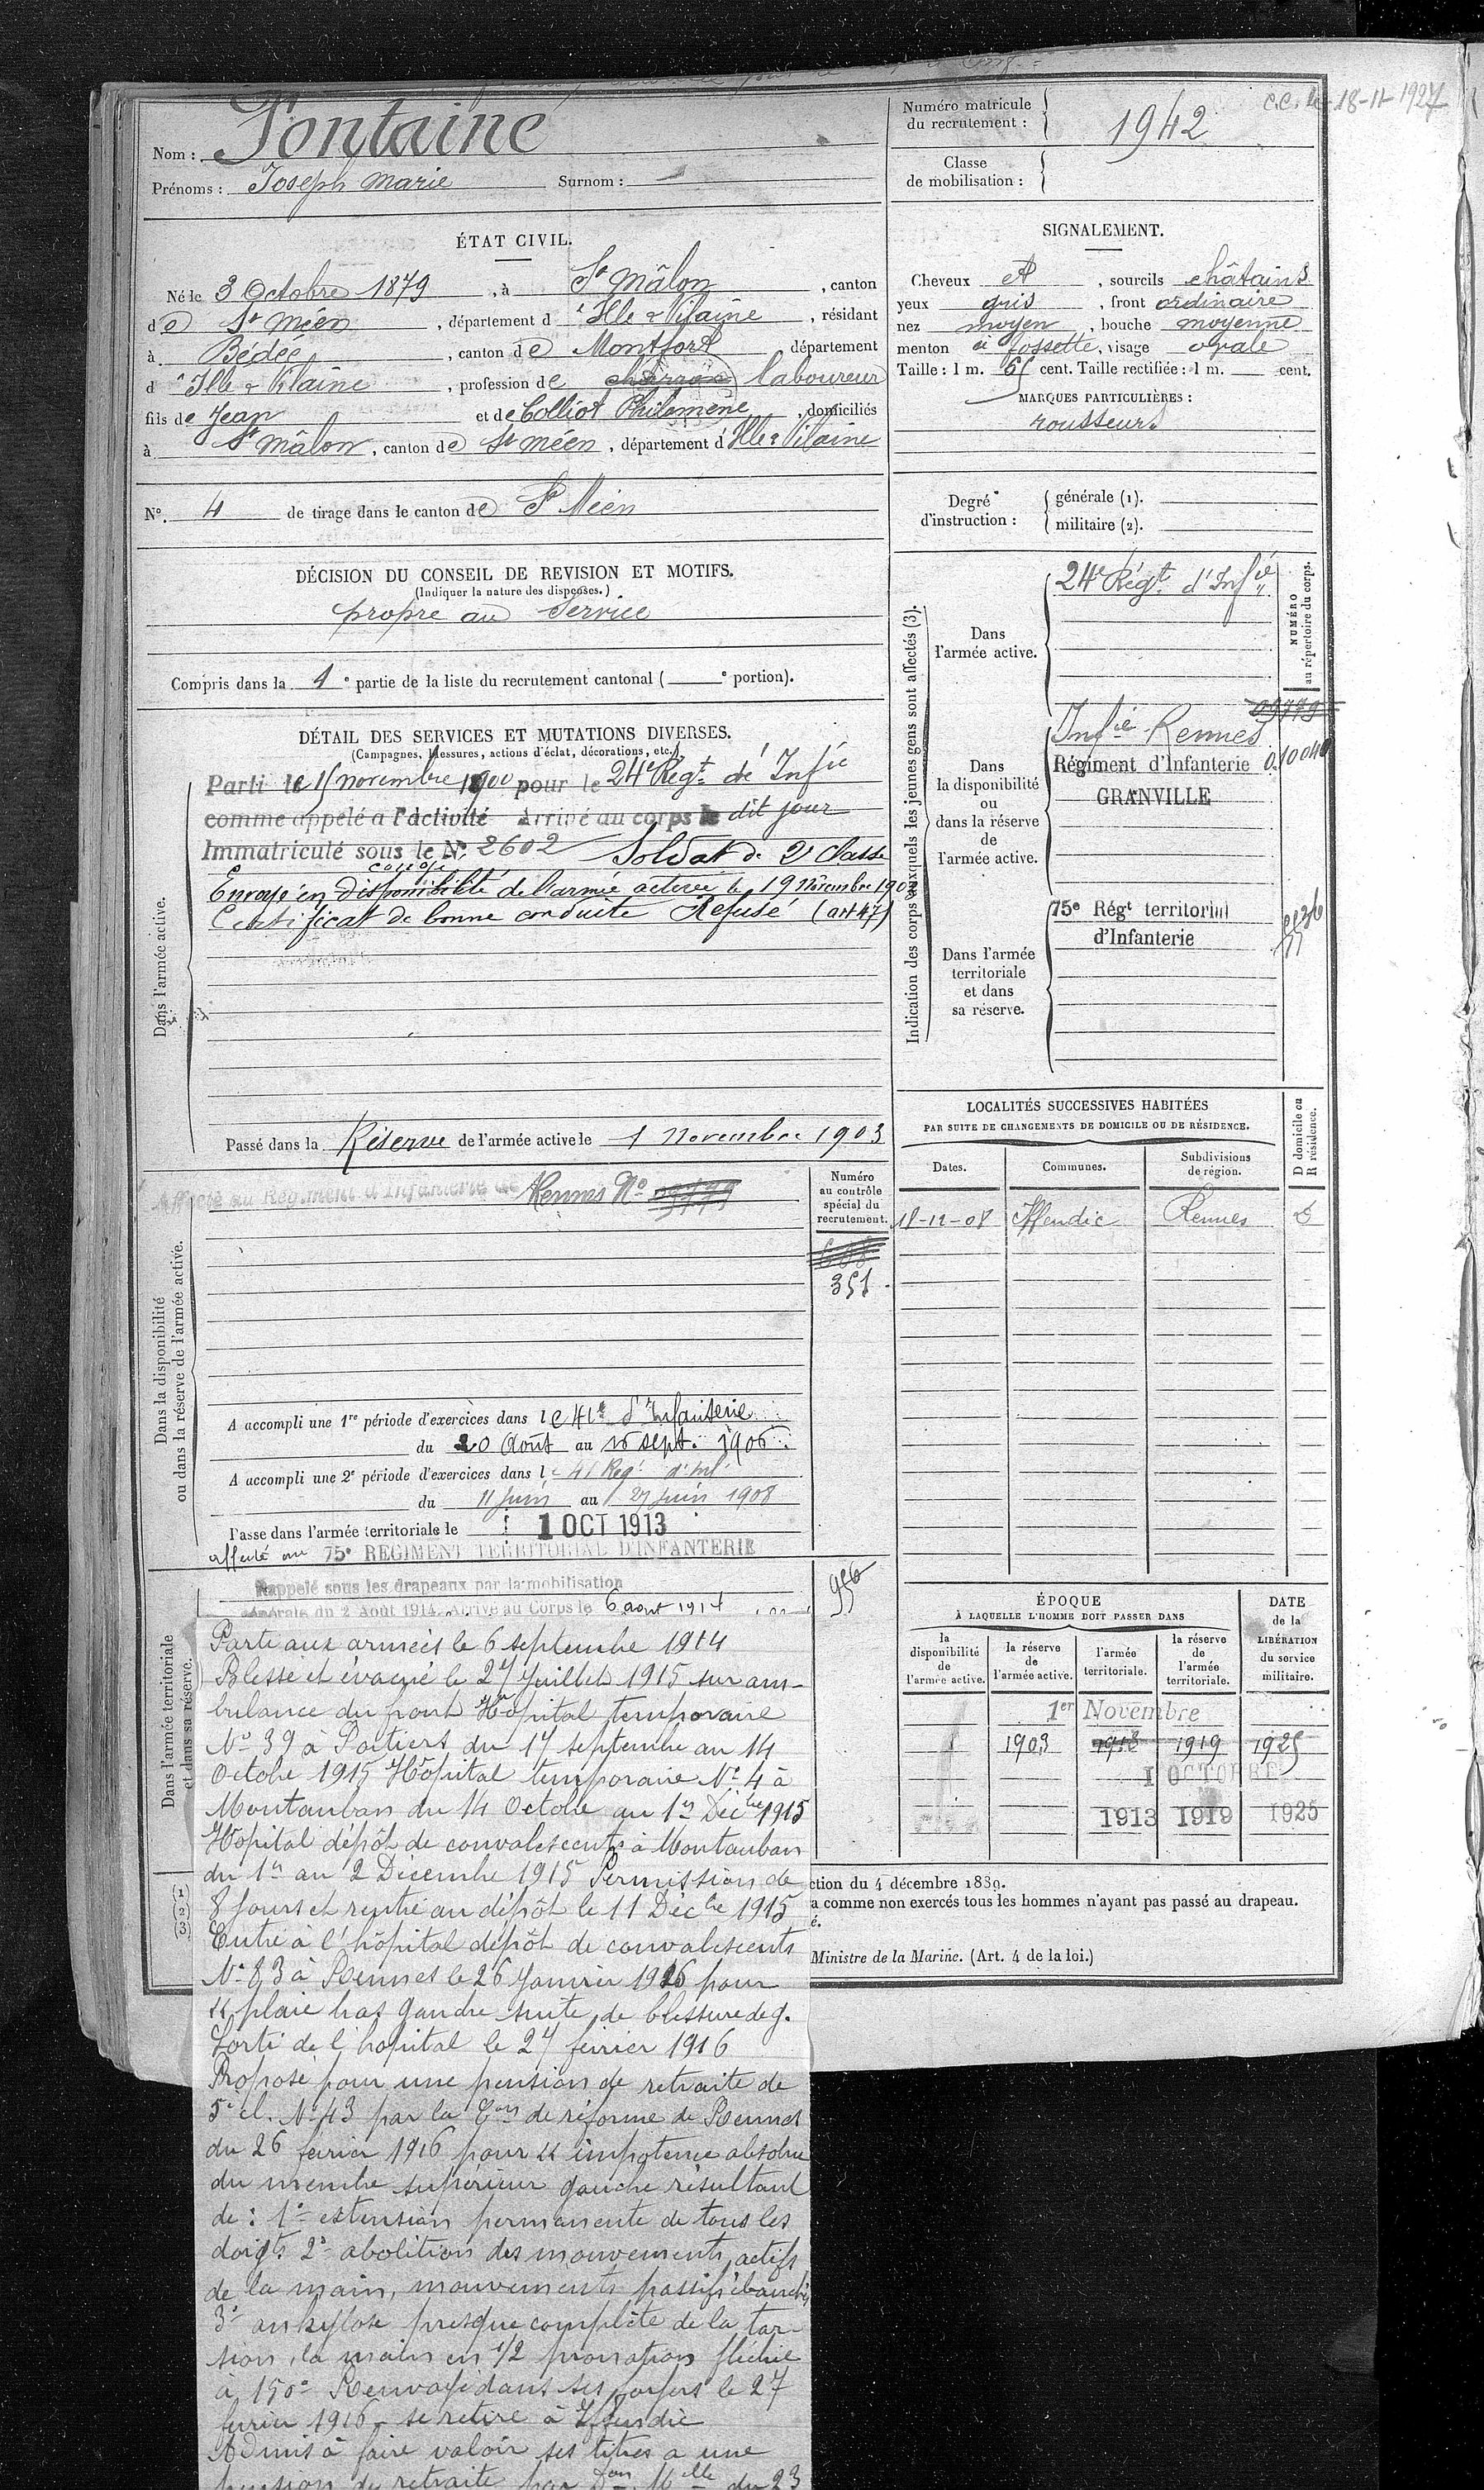 Nom : Fontaine
Prénoms : Joseph Marie Surnom :
Numéro matricule
du recrutement : 1942
C.C. le 18-11-1927
Classe
de mobilisation :
ÉTAT CIVIL.
Né le 3 Octobre 1879, à St Mâlon, canton
de St Méen, département d'Ille & Vilaine, résidant
à Bédée, canton de Montfort département
d'Ille & Vilaine, profession de charron laboureur
fils de Jean et de Colliot Philomène, domiciliés
à St Mâlon, canton de St Méen, département d'Ille & Vilaine
N° 4 de tirage dans le canton de St Méen
SIGNALEMENT.
Cheveux et, sourcils châtains
yeux gris, front ordinaire
nez moyen, bouche moyenne
menton à fossette, visage ovale
Taille : 1 m. 65 cent. Taille rectifiée : 1 m. cent.
MARQUES PARTICULIÈRES :
rousseurs
Degré d'instruction : générale (1).
militaire (2).
DÉCISION DU CONSEIL DE REVISION ET MOTIFS.
(Indiquer la nature des dispenses.)
propre au Service
Compris dans la 1e partie de la liste du recrutement cantonal ( e portion).
DÉTAIL DES SERVICES ET MUTATIONS DIVERSES.
(Campagnes, blessures, actions d'éclat, décorations, etc.)
Dans l'armée active.
Parti le 15 novembre 1900 pour le 24e Régt d'Infie
comme appelé a l'activité Arrivé au corps le dit jour
Immatriculé sous le N° 2602 Soldat de 2e Classe
congé
Envoyé en disponibilité de l'armée active le 19 Novembre 1903
Certificat de bonne conduite Refusé (art 47)
Passé dans la Réserve de l'armée active le 1 novembre 1903
Indication des corps auxquels les jeunes gens sont affectés (3).
NUMÉRO
au répertoire du corps.
Dans
l'armée active.
24e Régt d'Infie
Dans
la disponibilité
ou
dans la réserve
de
l'armée active.
Infie Rennes 09779
Régiment d'Infanterie 010040
GRANVILLE
Dans l'armée
territoriale
et dans
sa réserve.
75e Régt territorial
d'Infanterie
Dans la disponibilité
ou dans la réserve de l'armée active.
Affecté au Régiment d'Infanterie de Rennes N° 09779
Numéro
au contrôle
spécial du
recrutement.
351
A accompli une 1re période d'exercices dans le 41e d'Infanterie
du 20 Août au 16 sept. 1906
A accompli une 2e période d'exercices dans le 41 Régt d'Inf
du 11 juin au 27 juin 1908
Passé dans l'armée territoriale le 1 OCT 1913
affecté au 75e REGIMENT TERRITORIAL D'INFANTERIE
LOCALITÉS SUCCESSIVES HABITÉES
PAR SUITE DE CHANGEMENTS DE DOMICILE OU DE RÉSIDENCE.
D domicile ou
R résidence.
Dates. Communes. Subdivisions
de région.
18-12-08 Iffendic Rennes D
ÉPOQUE
À LAQUELLE L'HOMME DOIT PASSER DANS
DATE
de la
LIBÉRATION
du service
militaire.
la
disponibilité
de
l'armée active.
la réserve
de
l'armée active.
l'armée
territoriale.
la réserve
de
l'armée
territoriale.
1er Novembre
1903 1913 1919 1925
1 OCTOBRE
1913 1919 1925
Dans l'armée territoriale
et dans sa réserve.
Rappelé sous les drapeaux par la mobilisation
générale du 2 Août 1914. Arrivé au Corps le 6 aout 1914
956
Parti aux armées le 6 septembre 1914
Blessé et évacué le 27 Juillet 1915 sur am-
bulance du front Hôpital temporaire
N° 39 à Poitiers du 17 septembre au 14
Octobre 1915 Hôpital temporaire N° 4 à
Montauban du 14 Octobre au 1er Décbre 1915
Hôpital dépôt de convalescents à Montauban
du 1er au 2 Décembre 1915 Permission de
8 jours et rentré au dépôt le 11 Décbre 1915
Entré à l'hôpital dépôt de convalescents
N° 83 à Rennes le 26 Janvier 1916 pour
"plaie bras gauche suite de blessure de g.
Sorti de l'hopital le 27 février 1916
Proposé pour une pension de retraite de
5e cl. N° 43 par la Con de réforme de Rennes
du 26 février 1916 pour "impotence absolue
du membre supérieur gauche résultant
de : 1° extension permanente de tous les
doigts 2° abolition des mouvements actifs
de la main, mouvements passifs ébauchés
3° ankylose presque complète de la tor-
sion, la main en 1/2 pronation fléchie
à 150° Renvoyé dans ses foyers le 27
février 1916 se retire à Iffendic
Admis à faire valoir ses titres a une
pension de retraite par Don Mlle du 23
(1)
(2)
(3)
ction du 4 décembre 1889.
a comme non exercés tous les hommes n'ayant pas passé au drapeau.
é.
Ministre de la Marine. (Art. 4 de la loi.)